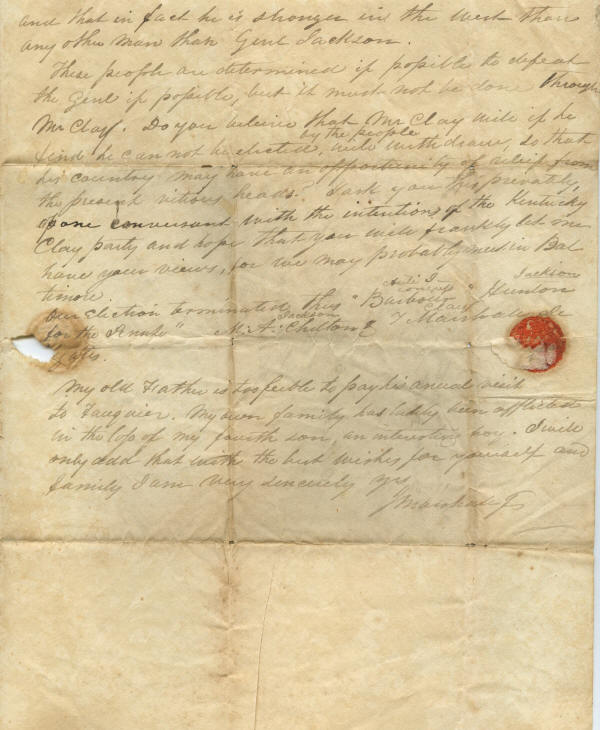 and that in fact he is stronger in the West than
any other Man than Genl Jackson.
These people are determined if possible to defeat
the Genl if possible, but it must not be done through
Mr Clay. Do you believe that Mr Clay will if he
by the people
find he can not be elected, will withdraw, so that
his country may have an opportunity of relief from
the present vitious heads. I ask you this privately,
as one conversant with the intention of the Kentucky
Clay party and hope that you will frankly let me
have your views, for we may probably meet in Bal
timore. Jackson
Our Election terminated thus " Barbour " Hunton
Clay
for the Senate" Jackson M. A. Chilton & T Marshall
My old Father is too feeble to pay his anual visit
to Fauquier. My own family has lately been afflicted
in the loss of my fourth son, an interesting boy. I will
only add that with the best wishes for yourself and
family I am very sincerely yrs
J Marshall Jr